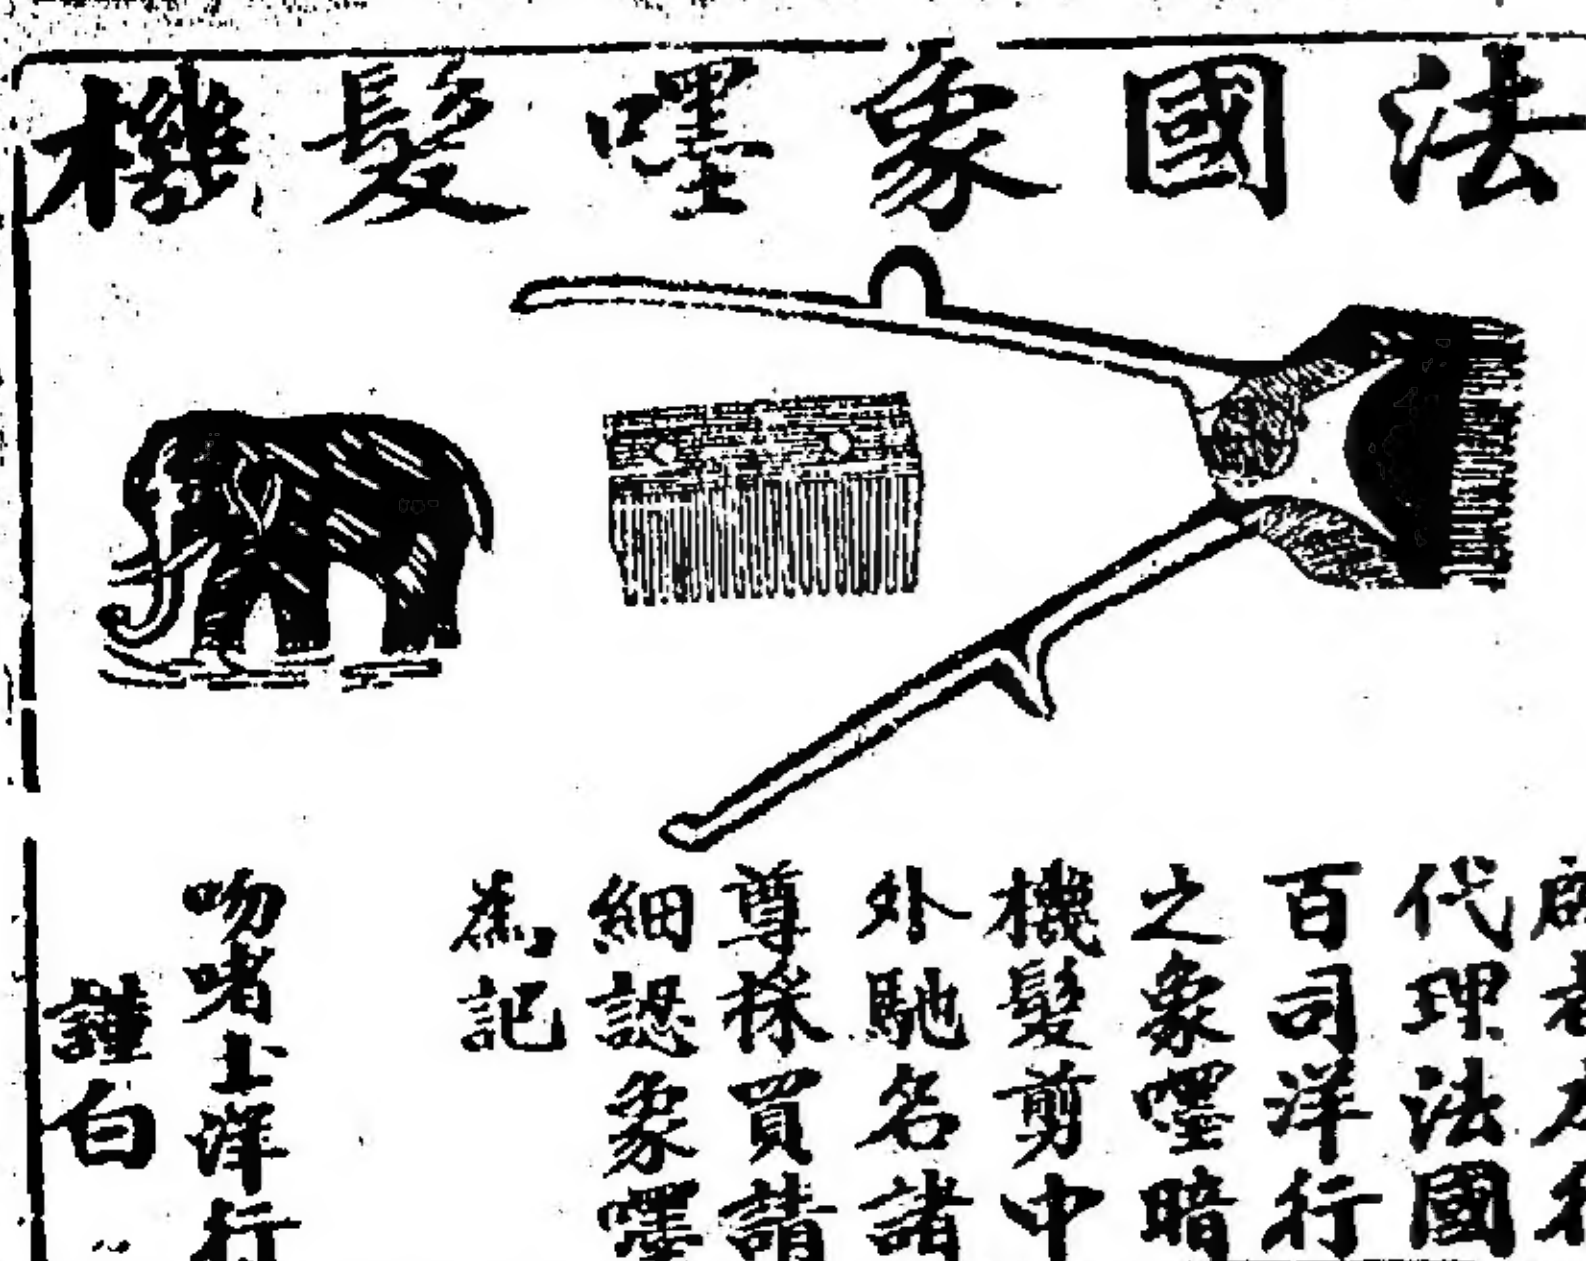 法國象嘜髮機
啟者本行
代理法國
百司洋行
之象嘜暗
機髮剪中
外馳名諸
尊採買請
細認象嘜
為記
吻啫士洋行
謹白